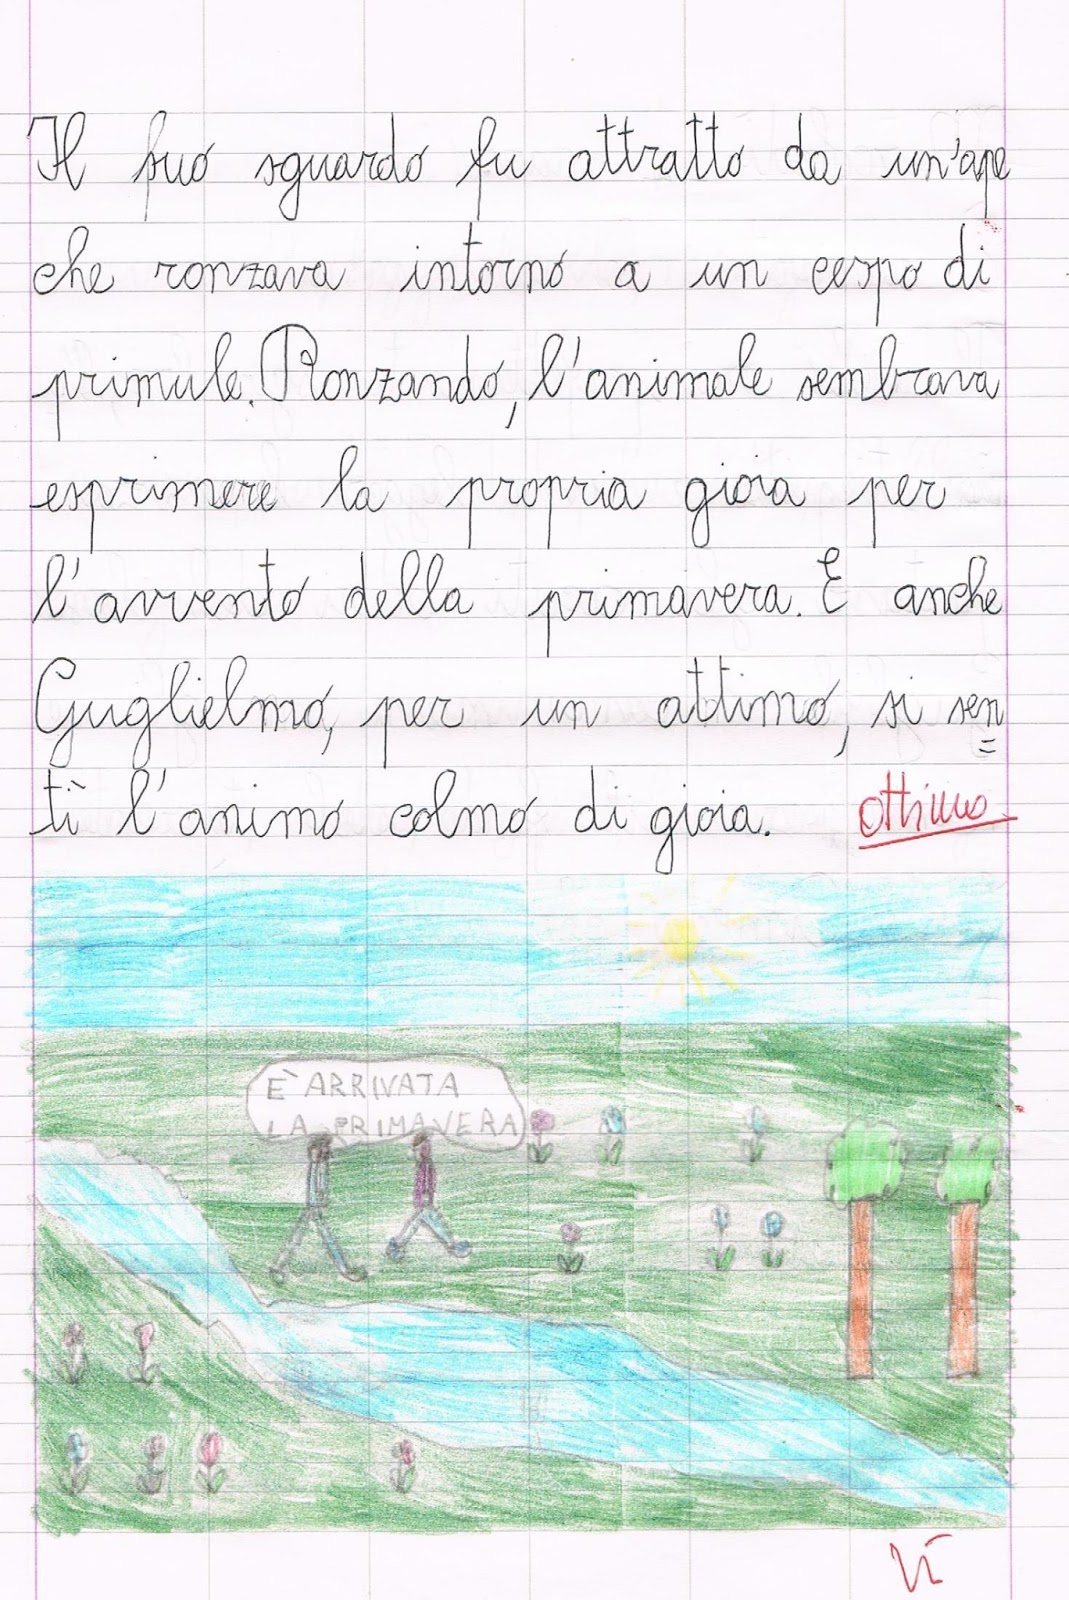 Il suo sguardo fu attratto da un'ape
che ronzava intorno a un cespo di
primule. Ronzando, l'animale sembrava
esprimere la propria gioia per
l'avvento della primavera. E anche
Guglielmo, per un attimo, si sen=
tì l'animo colmo di gioia. Ottimo
È ARRIVATA
LA PRIMAVERA
Vi